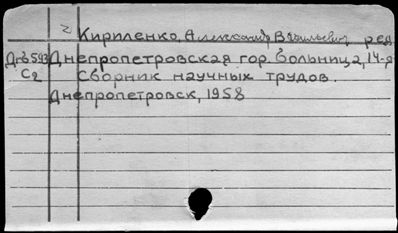 2 Кириленко, Александр Васильевич ред
Днепропетровская гор. больница, 14-я
С2 Сборник научных трудов.
Днепропетровск, 1958